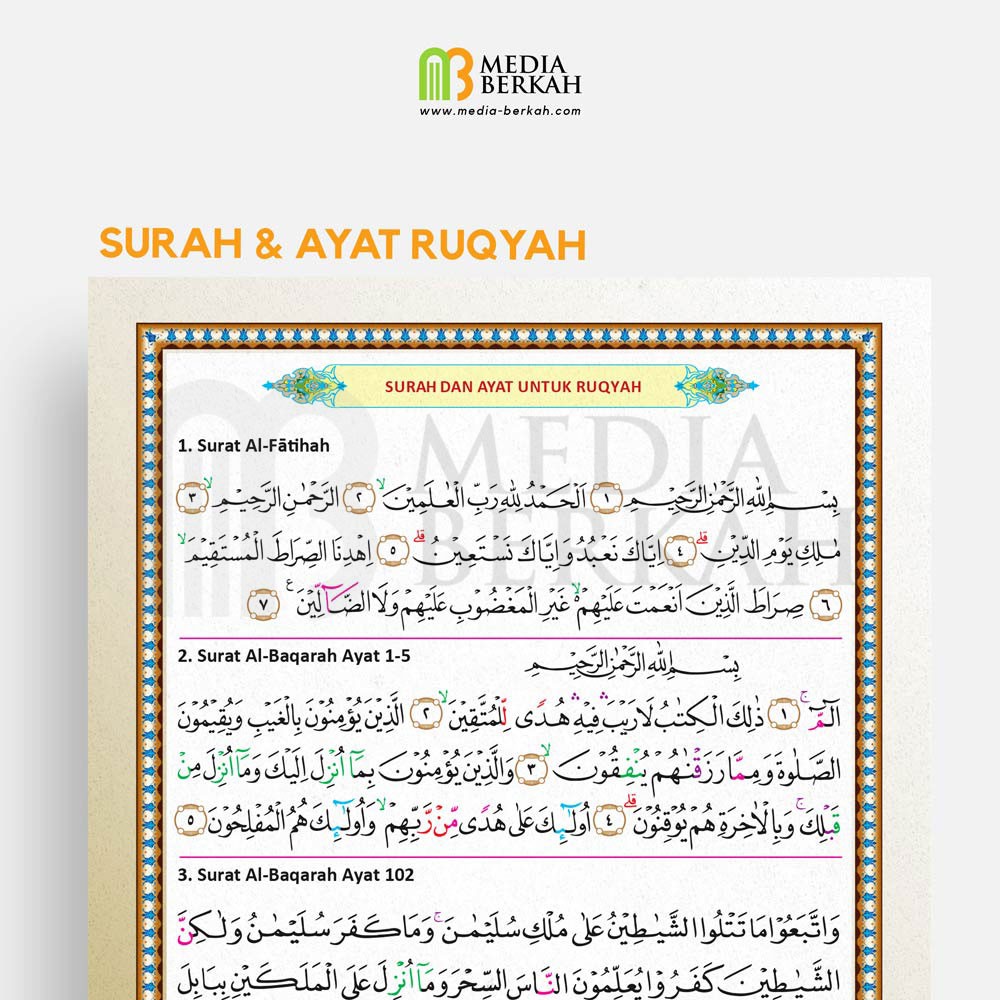 MEDIA
BERKAH
www.media-berkah.com
SURAH & AYAT RUQYAH
SURAH DAN AYAT UNTUK RUQYAH
1. Surat Al-Fātihah
بِسْمِ اللّٰهِ الرَّحْمٰنِ الرَّحِيْمِ ١ اَلْحَمْدُ لِلّٰهِ رَبِّ الْعٰلَمِيْنَۙ ٢ الرَّحْمٰنِ الرَّحِيْمِۙ ٣
مٰلِكِ يَوْمِ الدِّيْنِۗ ٤ اِيَّاكَ نَعْبُدُ وَاِيَّاكَ نَسْتَعِيْنُۗ ٥ اِهْدِنَا الصِّرَاطَ الْمُسْتَقِيْمَۙ
٦ صِرَاطَ الَّذِيْنَ اَنْعَمْتَ عَلَيْهِمْۙ غَيْرِ الْمَغْضُوْبِ عَلَيْهِمْ وَلَا الضَّاۤلِّيْنَࣖ ٧
2. Surat Al-Baqarah Ayat 1-5
بِسْمِ اللّٰهِ الرَّحْمٰنِ الرَّحِيْمِ
الۤمّۤۚ ١ ذٰلِكَ الْكِتٰبُ لَا رَيْبَۛ فِيْهِۛ هُدًى لِّلْمُتَّقِيْنَۙ ٢ الَّذِيْنَ يُؤْمِنُوْنَ بِالْغَيْبِ وَيُقِيْمُوْنَ
الصَّلٰوةَ وَمِمَّا رَزَقْنٰهُمْ يُنْفِقُوْنَۙ ٣ وَالَّذِيْنَ يُؤْمِنُوْنَ بِمَآ اُنْزِلَ اِلَيْكَ وَمَآ اُنْزِلَ مِنْ
قَبْلِكَۚ وَبِالْاٰخِرَةِ هُمْ يُوْقِنُوْنَۗ ٤ اُولٰۤىِٕكَ عَلٰى هُدًى مِّنْ رَّبِّهِمْۙ وَاُولٰۤىِٕكَ هُمُ الْمُفْلِحُوْنَ ٥
3. Surat Al-Baqarah Ayat 102
وَاتَّبَعُوْا مَا تَتْلُوا الشَّيٰطِيْنُ عَلٰى مُلْكِ سُلَيْمٰنَۚ وَمَا كَفَرَ سُلَيْمٰنُ وَلٰكِنَّ
الشَّيٰطِيْنَ كَفَرُوْا يُعَلِّمُوْنَ النَّاسَ السِّحْرَ وَمَآ اُنْزِلَ عَلَى الْمَلَكَيْنِ بِبَابِلَ